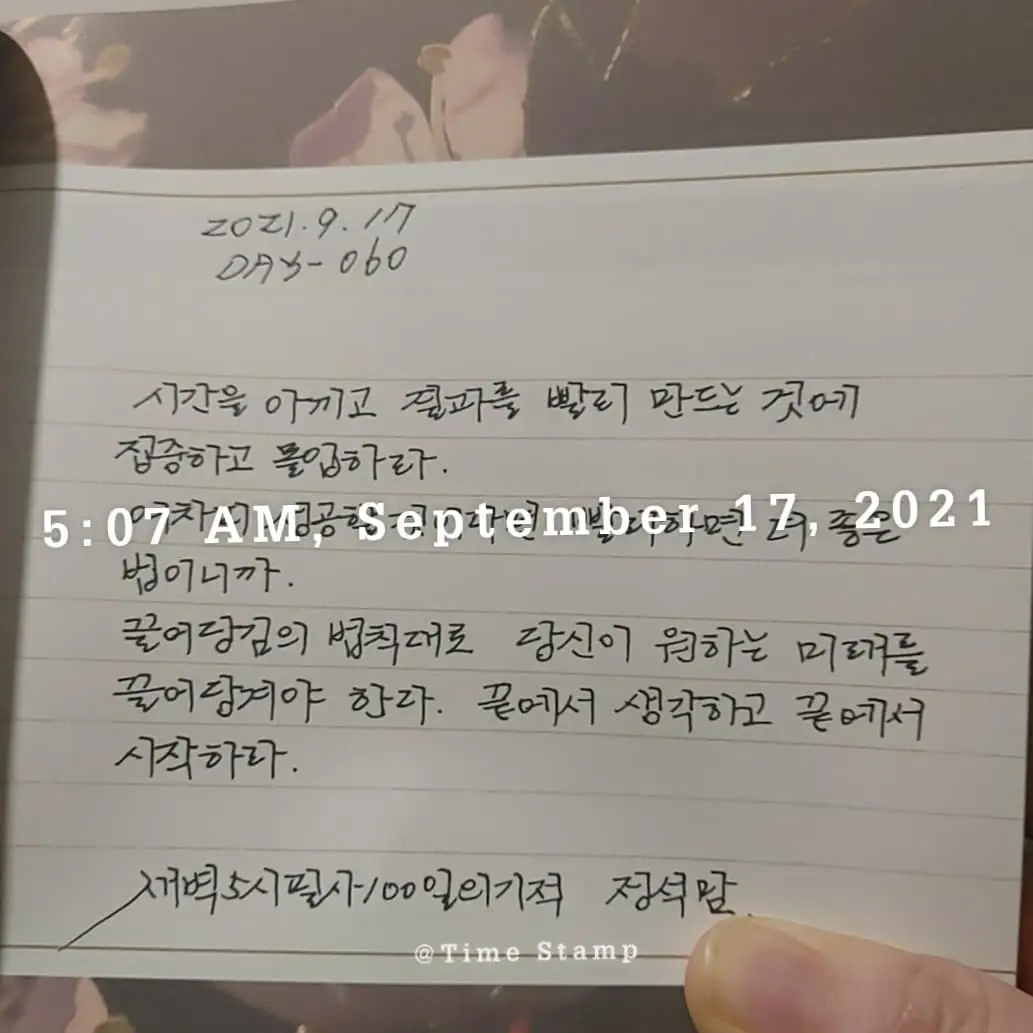 2021.9.17
DAY-060
시간을 아끼고 결과를 빨리 만드는 것에
집중하고 몰입하라.
5:07 AM, September 17, 2021
좋은
법이니까.
끌어당김의 법칙대로 당신이 원하는 미래를
끌어당겨야 한다. 끝에서 생각하고 끝에서
시작하라.
새벽5시필사100일의기적 정석맘
@Time Stamp